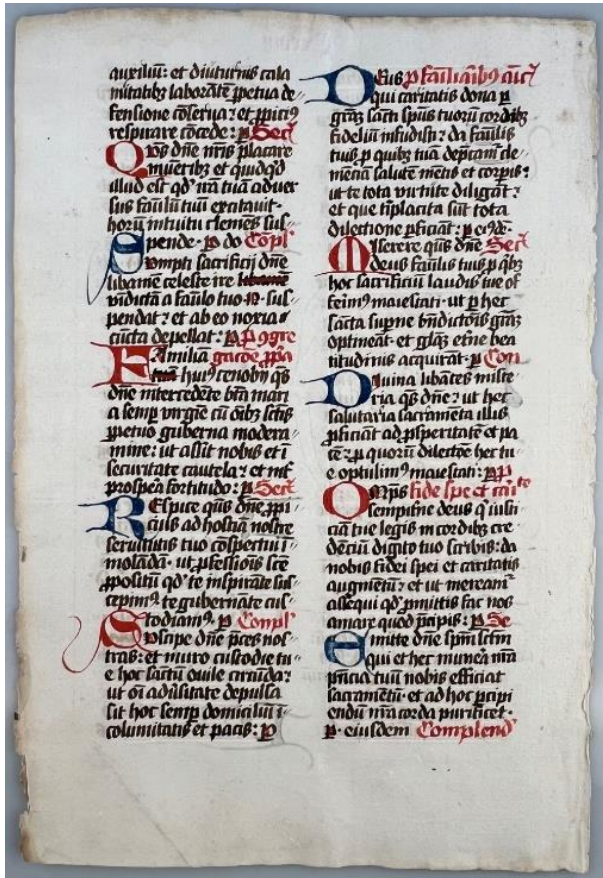 auxiliū: et diuturnis cala
mitatibȝ laborātē ꝑpetua de
fensione cōserua: et ꝓpiciꝰ
respirare cōcede: ꝑ Sect
Quos dñe nr̄is placare
muneribȝ et quidqͥd
illud est qd̓ irā tuā aduer
sus famlū tuū excitauit·
horū intuitu clemēs sus
pende· ꝑ do Cōpl
Sumpti sacrificij dñe
libamē celeste ire
vīdictā a famlo tuo ·N· sus
pendat: et ab eo noxia
cūcta depellat: ꝑ ꝓ ꝯgre
Familiā
huiꝰ cenobij qs̄
dñe intercedēte btā mari
a semꝑ virgīe cū oībȝ sctīs
ꝑpetuo guberna modera
mine: ut assit nobis et ī
securitate cautela: et int̄
prospera fortitudo: ꝑ Sect
Respice qus̄ dñe ꝓpi
cius ad hostiā nostre
seruitutis tuo cōspectui ī
molādā· ut ꝓfessionis sc̄e
ꝓpositū qd̓ te inspirāte sus
cepimꝰ te gubernāte cus
todiamꝰ· ꝑ Compl
Suscipe dñe p̄ces nos
tras: et muro custodie tu
e hoc sāctū ouile circūda:
ut oī aduersitate depulsa
sit hoc semꝑ domiciliū ī
columitatis et pacis: ꝑ
Deus ꝓ familiaribꝰ
qui caritatis dona ꝑ
grām sācti spūs tuorū cordibȝ
fideliū infudisti: da famlis
tuis ꝓ quibȝ tuā dep̄camur cle
mēciā salutē mētis et corꝑis:
ut te tota virtute diligāt:
et que tͥ placita sūt tota
dilectione ꝑficiāt: ꝑ eiꝰde·
Miserere qūs dñe Sect
deus famlis tuis ꝓ qͥbȝ
hoc sacrificiū laudis tue of
ferimꝰ maiestati· ut ꝑ hec
sācta supne bn̄dictōis grām
optineāt et glām etr̄ne bea
titudinis acquirāt: ꝑ Con
Diuina libātes miste
ria qs̄ dñe: ut hec
salutaria sacramēta illis
ꝓficiāt ad ꝓsperitatē et pa
cē: ꝓ quorū dilectōe hec tu
e optulimꝰ maiestati: ꝑ ꝓ
Omps̄ fide spe et cāīte
sempit̄ne deus qͥ iusti
ciā tue legis in cordibȝ cre
dēciū digito tuo scribis: da
nobis fidei spei et caritatis
augmētū: et ut mereamur
assequi qd̓ ꝓmittis fac nos
amare quod p̄cipis: ꝑ Se
Emitte dñe spm̄ sctm̄
qui et hec munera nr̄a
pn̄cia tuū nobis efficiat
sacramētū· et ad hoc ꝑcipi
endū nr̄a corda purificet·
ꝑ· eiusdem Complend